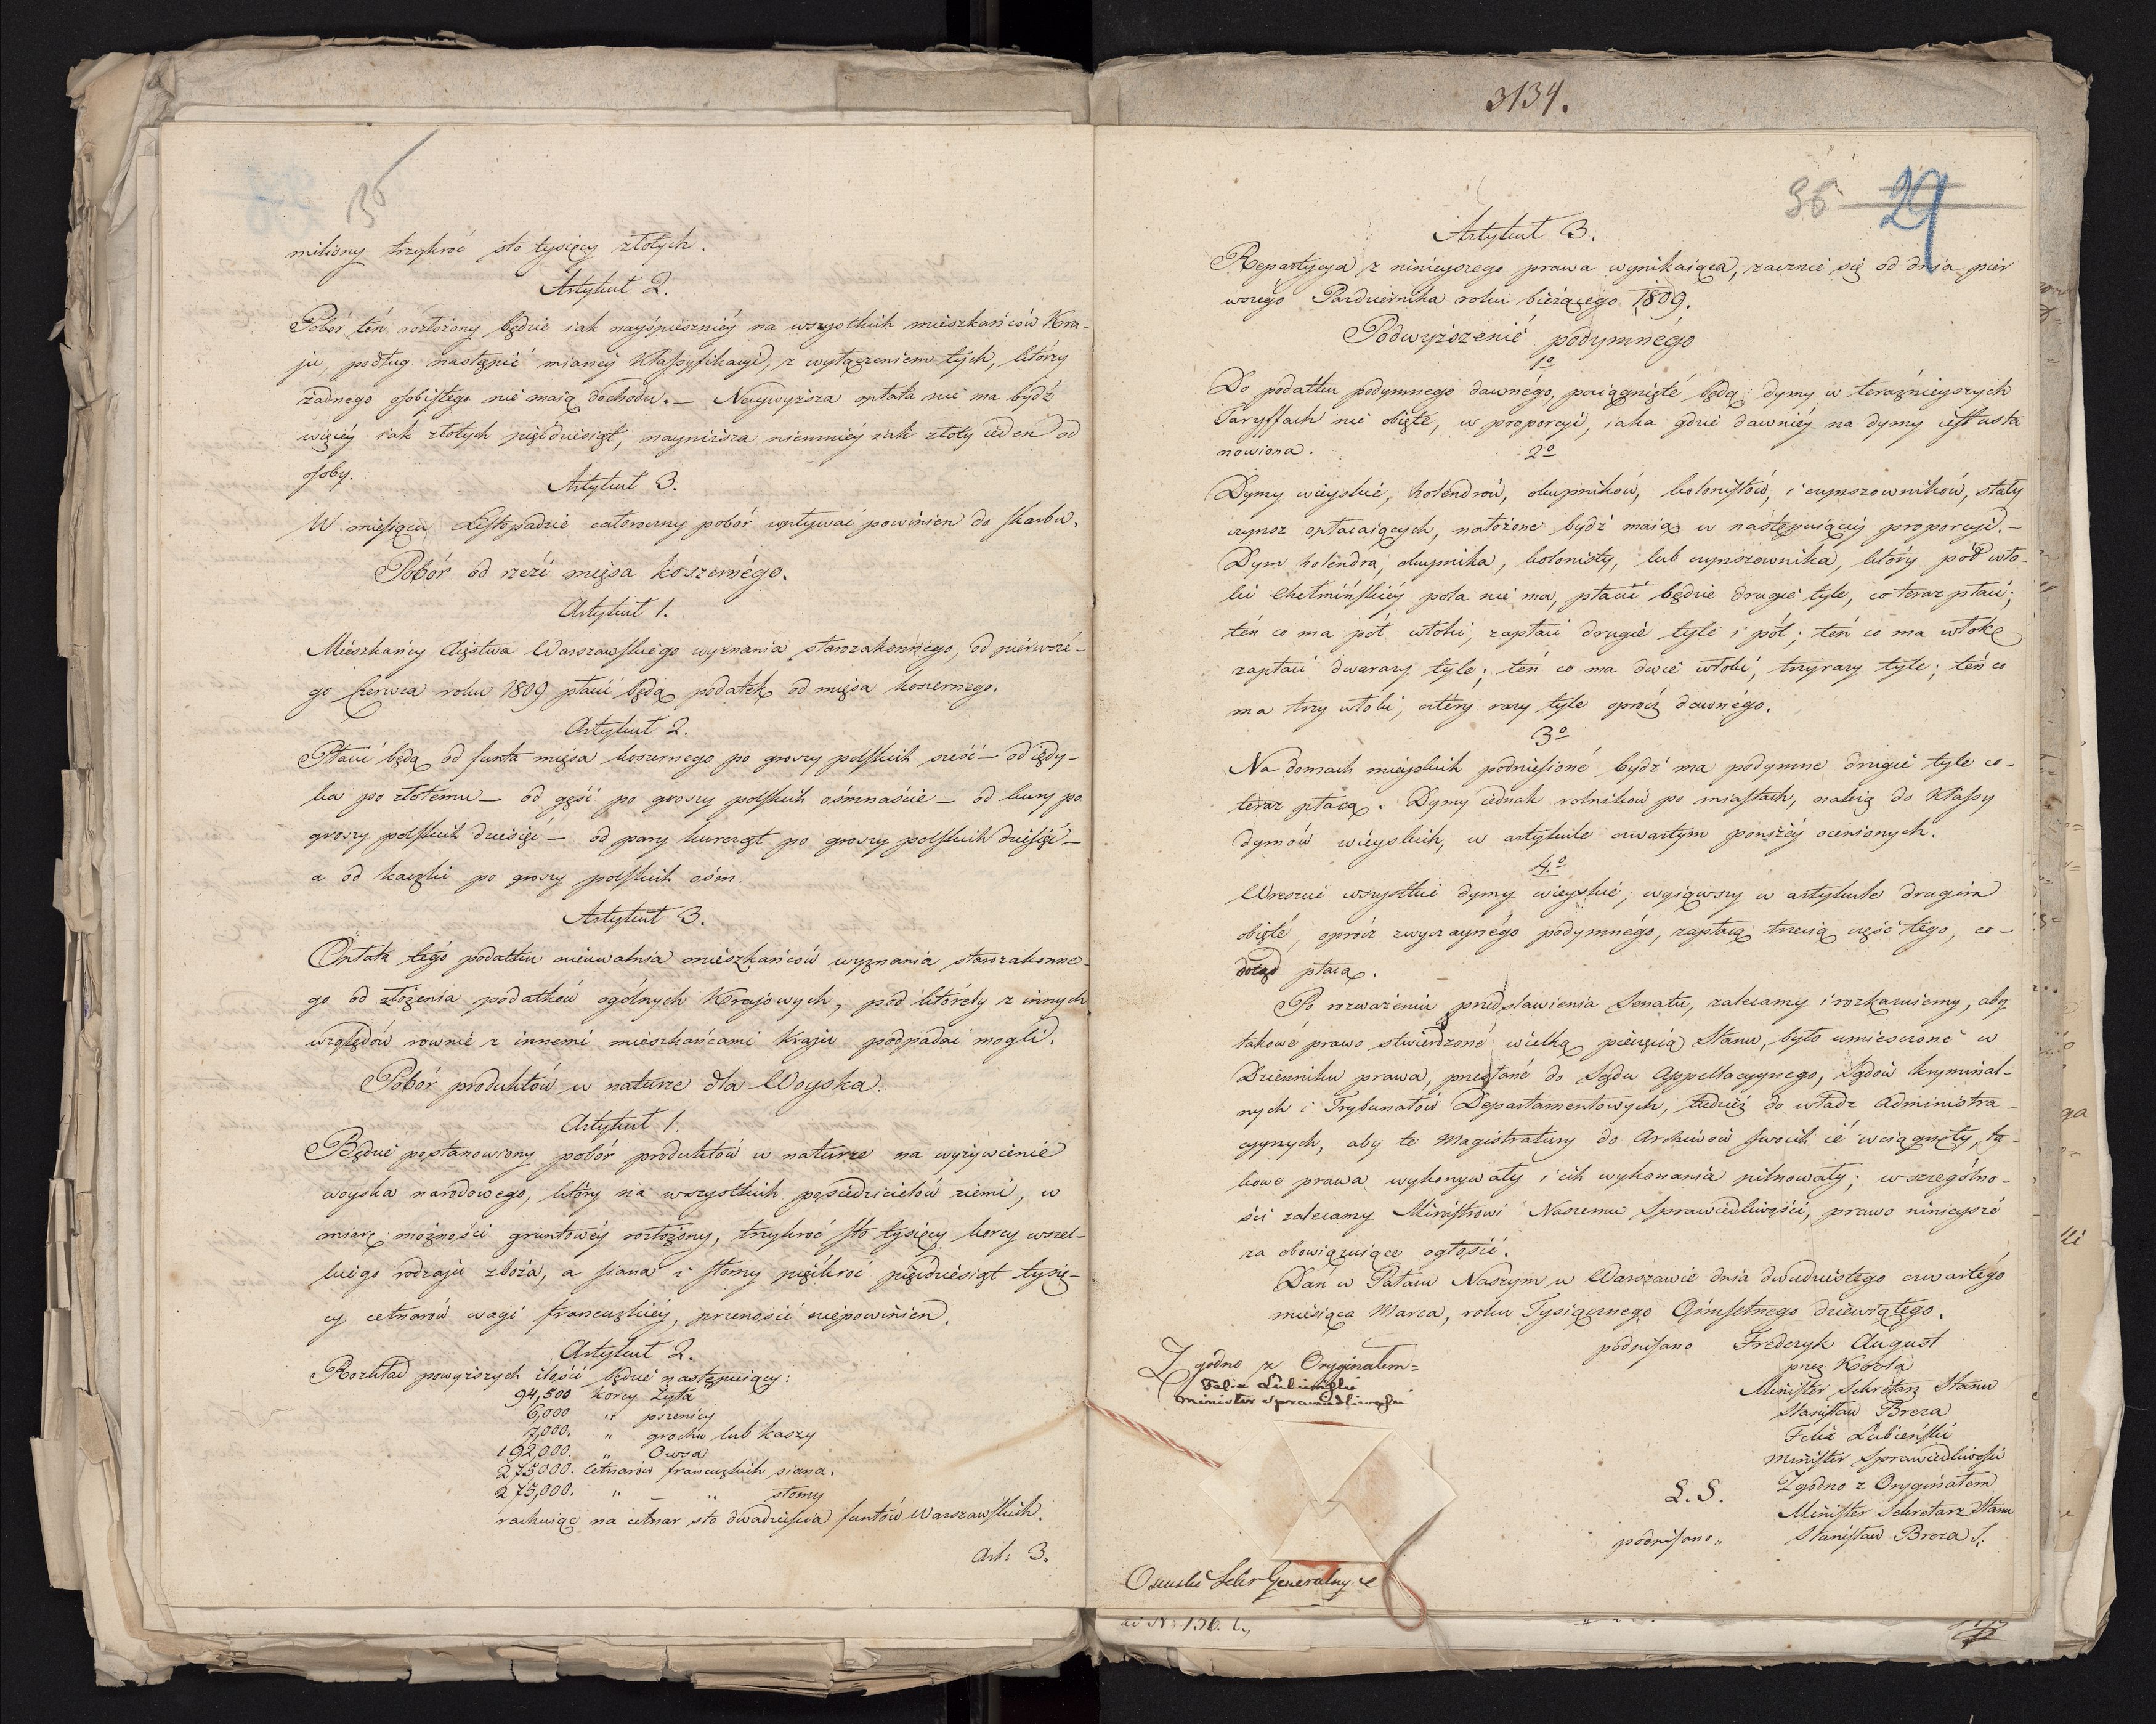 36
miliony trzykroć sto tysięcy złotych.
Artykuł 2.
Pobór ten rozłożony będzie iak nayśpieszniéy na wszystkich mieszkańców Kra-
ju, podług nastąpić mianéj Klassyfikacyi, z wyłączeniem tych, którzy
żadnego osobistego nie maią dochodu. — Naywyższa opłata nie ma bydź
więcéy iak złotych pięćdziesiąt, nayniższa niemniéy iak złoty ieden od
osoby.
Artykuł 3.
W miesiącu Listopadzie całoroczny pobór wpływać powinien do skarbu.
Pobór od rzezi mięsa koszernégo.
Artykuł 1.
Mieszkańcy Xięstwa Warszawskiego wyznania starozakonnego, od pierwszé-
go Czerwca roku 1809 płacić będą podatek od mięsa koszernego.
Artykuł 2.
Płacić będą od funta mięsa koszernego po groszy polskich sześć — od iędy-
ka po złotemu — od gęsi po groszy polskich ośmnaście — od kury po
groszy polskich dziesięć — od pary kurcząt po groszy polskich dziesięć —
a od kaczki po groszy polskich ośm.
Artykuł 3.
Opłata tego podatku nieuwalnia mieszkańców wyznania starozakonne-
go od złożenia podatków ogólnych Krajowych, pod któréby z innych
względów równie z innemi mieszkańcami kraju podpadać mogli.
Pobór produktów w naturze dla Woyska.
Artykuł 1.
Będzie postanowiony pobór produktów w naturze na wyżywienie
woyska narodowego, który na wszystkich posiedzicielów ziemi, w
miarę możności gruntowéy rozłożony, trzykroć sto tysięcy korcy wszel-
kiego rodzaju zboża, a siana i słomy pięćkroć pięćdziesiąt tysię-
cy cetnarów wagi francuzkiéy, przenosić niepowinien.
Artykuł 2.
Rozkład powyższych ilości będzie następuiący:
94,500 korcy Żyta
6,000 " pszenicy
7,000. " grochu lub kaszy
192,000. " Owsa
275,000. Cetnarów francuzkich siana.
275,000. " " słomy
rachuiąc na cetnar sto dwadzieścia funtów Warszawskich.
Art: 3.
3134.
36 29
Artykuł 3.
Repartycya z ninieyszego prawa wynikaiąca, zacznie się od dnia pier
wszego Października roku bieżącego 1809.
Podwyższenie podymnégo
1º
Do podatku podymnego dawnégo, pociągnięte będą dymy w teraźnieyszych
Taryffach nie obięte, w proporcyi, iaka gdzie dawniéy na dymy iest usta
nowiona.
2º
Dymy wieyskie, holendrów, okupników, kolonistów, i czynszowników, stały
czynsz opłacaiących, nałożone bydź maią w następuiącéy proporcyi. —
Dym holendra, okupnika, kolonisty, lub czynszownika, który pół wło-
ki Chełmińskiéy pola nie ma, płacić będzie drugie tyle, co teraz płaci;
ten co ma pół włoki, zapłaci drugie tyle i pół; ten co ma włokę
zapłaci dwarazy tyle; ten co ma dwie włoki, trzyrazy tyle; ten co
ma trzy włoki, cztéry razy tyle oprócz dawnégo.
3º
Na domach mieyskich podniesioné bydź ma podymne drugie tyle co-
teraz płacą. Dymy iednak rolników po miastach, należą do Klassy
dymów wieyskich, w artykule czwartym poniżéy ocenionych.
4º
Wreszcie wszystkie dymy wieyskie, wyiąwszy w artykule drugim
obięté, oprócz zwyczaynégo podymnégo, zapłacą trzecią część tego, co-
dotąd płacą.
Po rozważeniu przedstawienia Senatu, zalecamy i rozkazuiemy, aby
takowe prawo stwierdzoné wielką pieczęcią Stanu, było umieszczoné w
Dzienniku prawa, przesłané do Sądu Appellacyynego, Sądów kryminal-
nych i Trybunałów Departamentowych, tudzież do władz administra-
cyynych, aby te Magistratury do Archiwów swoich ie wciągnęły, ta-
kowe prawa wykonywały i ich wykonania pilnowały; w szczególno-
ści zalecamy Ministrowi Naszemu Sprawiedliwości, prawo ninieysze
za obowiązuiące ogłosić.
Dan w Pałacu Naszym w Warszawie dnia dwudziestego czwartégo
miesiąca Marca, roku Tysiącznego Ośmsetnego dziewiątego.
podpisano Frederyk August
przez Króla
Minister Sekretarz Stanu
Stanisław Breza
Felix Łubieński
Minister Sprawiedliwości
Zgodno z Oryginałem
L. S. Minister Sekretarz Stanu
podpisano " Stanisław Breza
Zgodno z Oryginałem =
Felix Łubieński
Minister Sprawiedliwości
Sekr Generalny
ad N: 156.